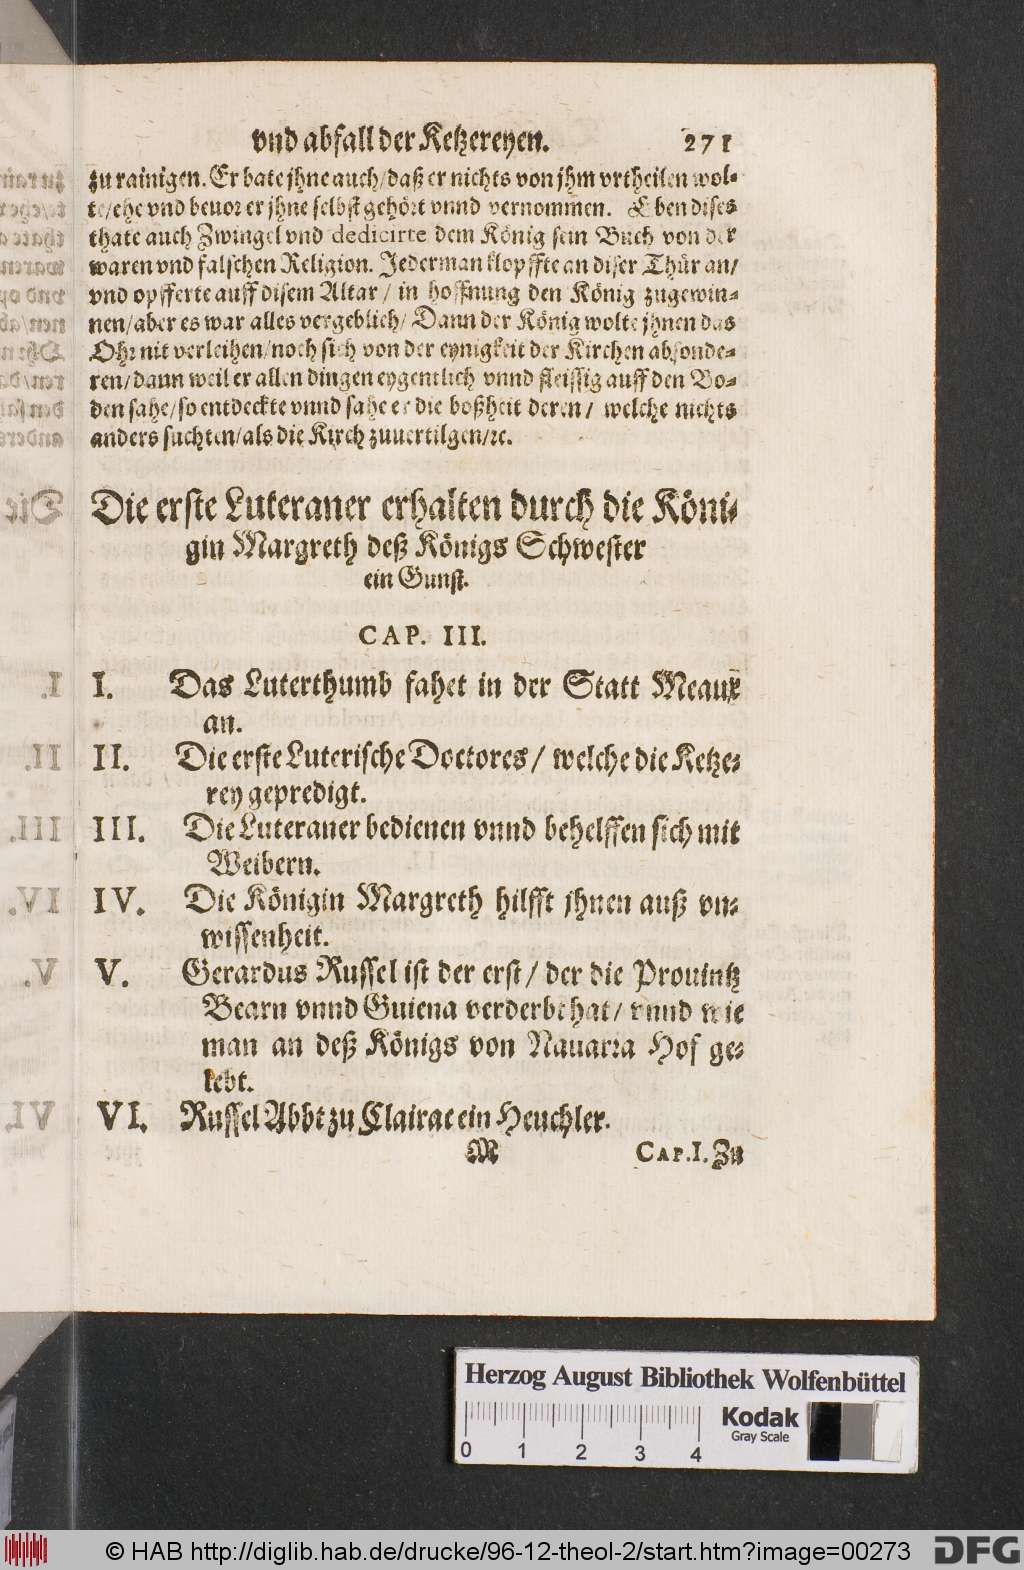 vnd abfall der Ketzereyen. 271
zu rainigen. Er bate jhne auch/daß er nichts von jhm vrtheilen wol-
te/ehe vnd beuor er jhne selbst gehört vnnd vernommen. Eben dises
thate auch Zwingel vnd dedicirte dem König sein Buch von der
waren vnd falschen Religion. Jederman klopffte an diser Thür an/
vnd opfferte auff disem Altar/ in hoffnung den König zugewin-
nen/aber es war alles vergeblich/ Dann der König wolte jhnen das
Ohr nit verleihen/noch sich von der eynigkeit der Kirchen absonde-
ren/dann weil er allen dingen eygentlich vnnd fleissig auff den Bo-
den sahe/so entdeckte vnnd sahe er die boßheit deren/ welche nichts
anders suchten/als die Kirch zuuertilgen/ꝛc.
Die erste Luteraner erhalten durch die Köni-
gin Margreth deß Königs Schwester
ein Gunst.
CAP. III.
I. Das Luterthumb fahet in der Statt Meaux
an.
II. Die erste Luterische Doctores/ welche die Ketze-
rey gepredigt.
III. Die Luteraner bedienen vnnd behelffen sich mit
Weibern.
IV. Die Königin Margreth hilfft jhnen auß vn-
wissenheit.
V. Gerardus Russel ist der erst/ der die Prouintz
Bearn vnnd Guiena verderbt hat/ vnnd wie
man an deß Königs von Nauarra Hof ge-
lebt.
VI. Russel Abbt zu Clairac ein Heuchler.
M CAP. I. Zu
Herzog August Bibliothek Wolfenbüttel
0 1 2 3 4
Kodak
Gray Scale
© HAB http://diglib.hab.de/drucke/96-12-theol-2/start.htm?image=00273
DFG